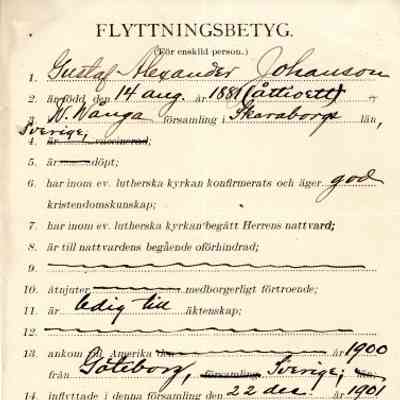 FLYTTNINGSBETYG.
(För enskild person.)
1. Gustaf Alexander Johanson
2. är född den 14 aug. år 1881 (åttioett)
3. N. Vånga församling i Skaraborgs län,
Sverige;
4. är vaccinerad;
5. är döpt;
6. har inom ev. lutherska kyrkan konfirmerats och äger god
kristendomskunskap;
7. har inom ev. lutherska kyrkan begått Herrens nattvard;
8. är till nattvardens begående oförhindrad;
9.
10. åtnjuter medborgerligt förtroende;
11. är ledig till äktenskap;
12.
13. ankom till Amerika den år 1900
från Göteborg, församling Sverige; län;
14. inflyttade i denna församling den 22 dec. år 1901